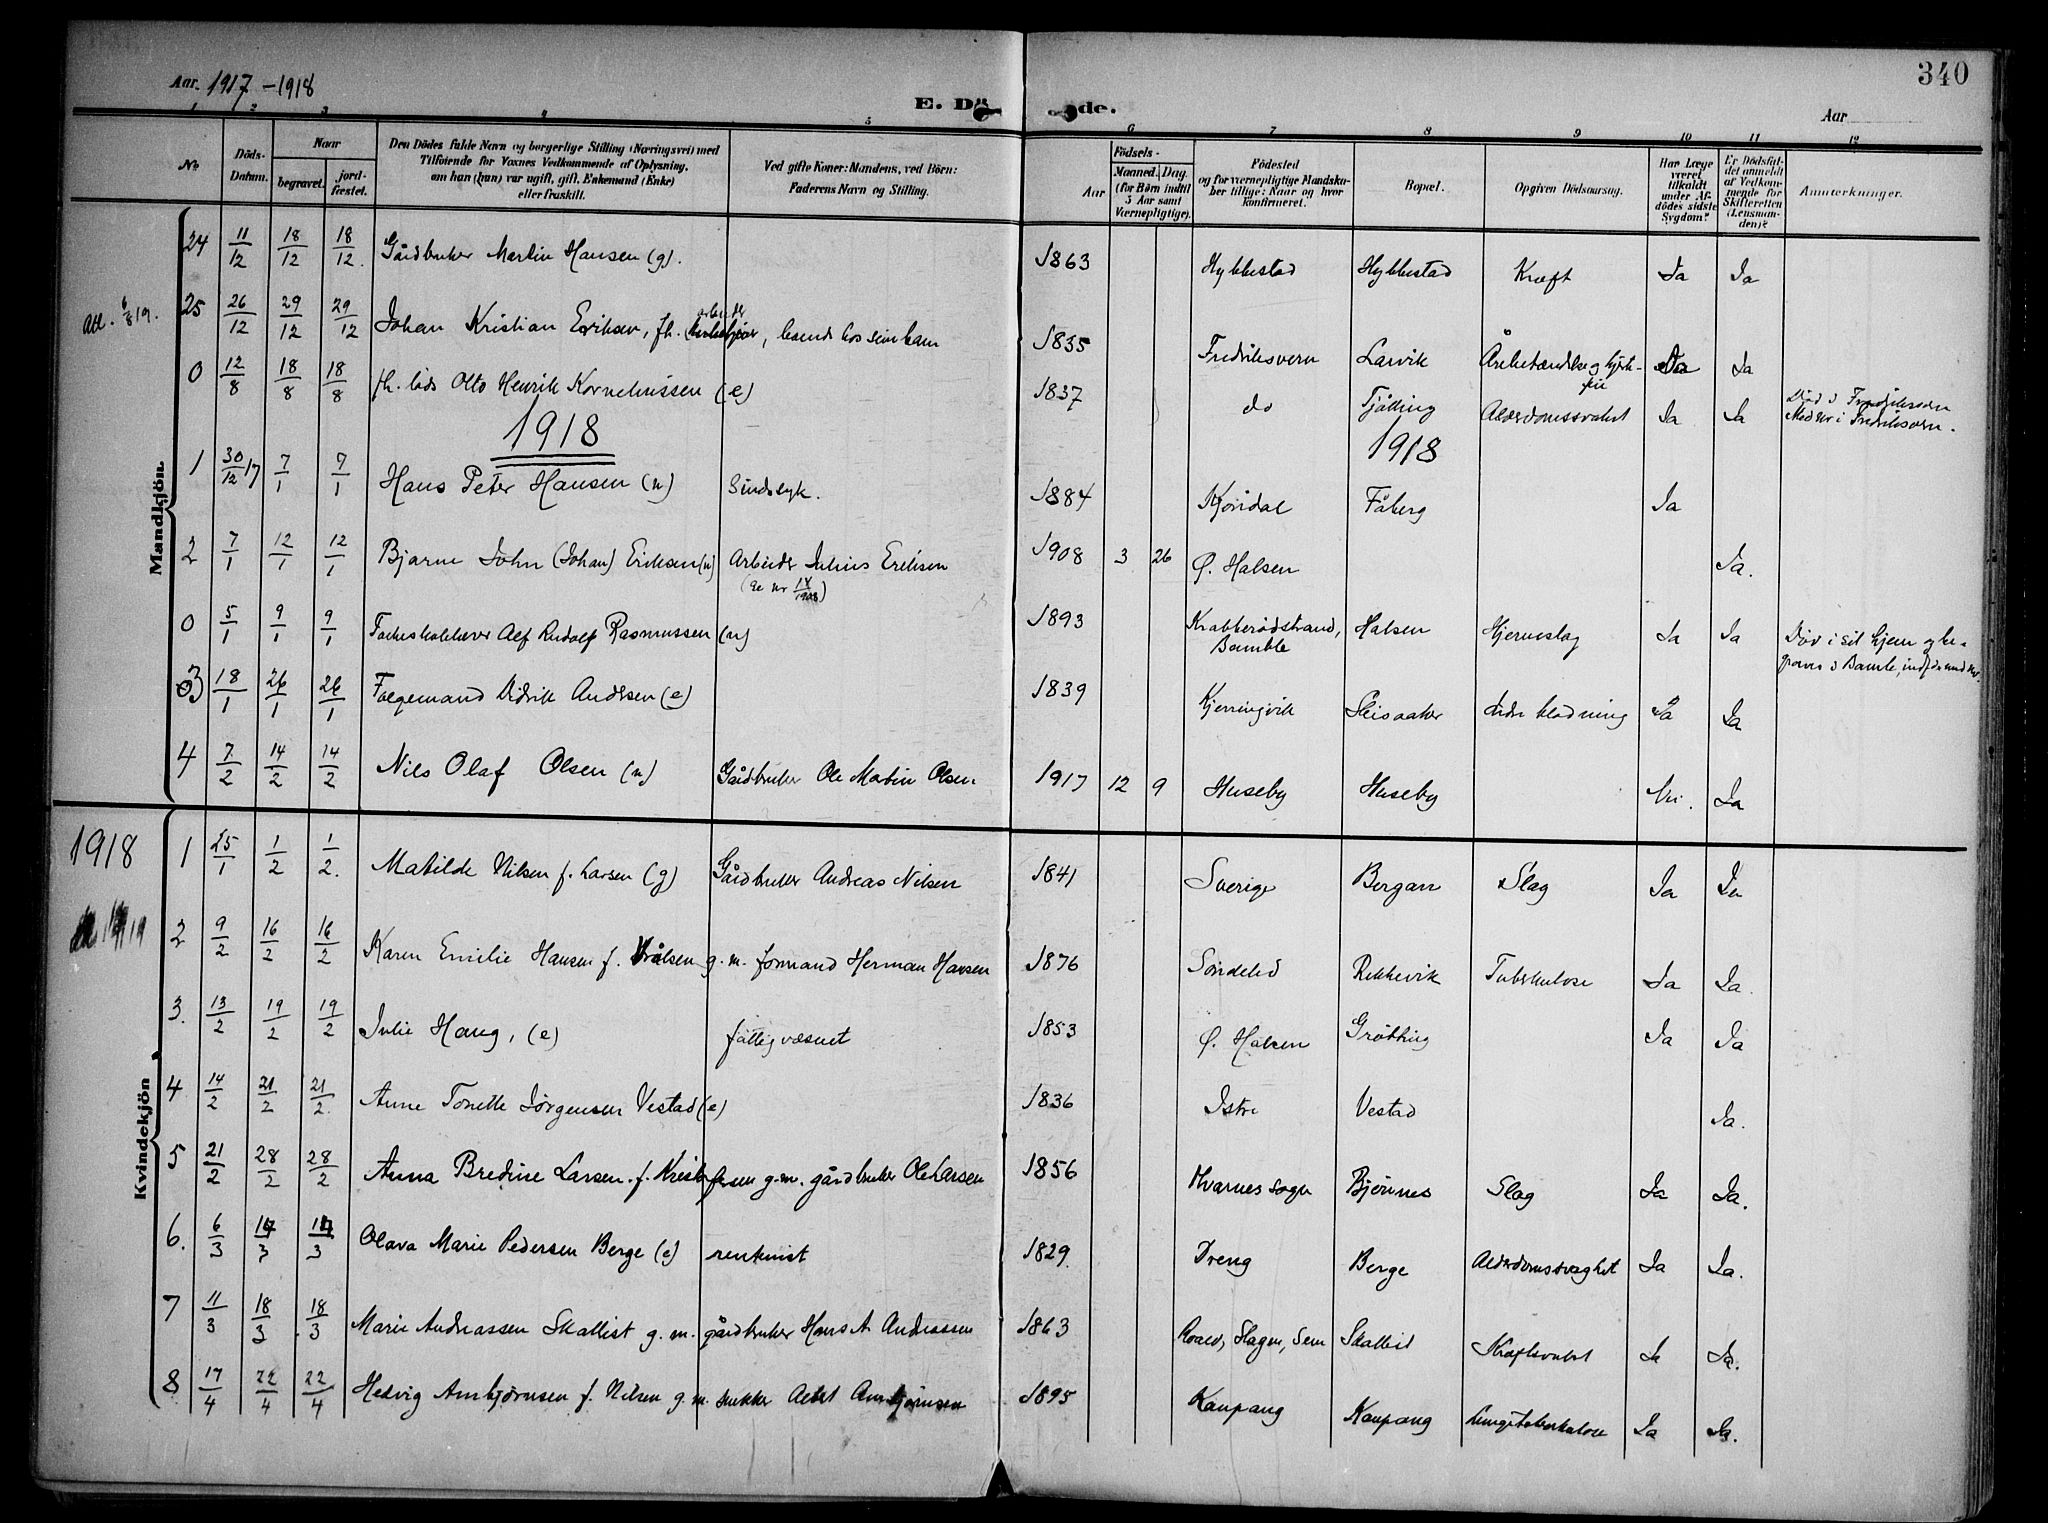 340
Aar. 1917 - 1918
E. Dö de.
Aar
1 2 3 4 5 6 7 8 9 10 11 12
No
Döds-Datum.
Naar
begravet.
jord-fæstet.
Den Dödes fulde Navn og borgerlige Stilling (Næringsvei) med
Tilföiende for Voxnes Vedkommende af Oplysning,
om han (hun) var ugift, gift, Enkemand (Enke)
eller fraskilt.
Ved gifte Koner: Mandens, ved Börn:
Faderens Navn og Stilling.
Aar
Födsels-
Maaned. Dag.
(for Börn indtil
5 Aar samt
Værnepligtige).
Födested
og for værnepligtige Mandska-
ber tillige: Naar og hvor
Konfirmeret.
Bopæl.
Opgiven Dödsaarsag.
Har Læge
været
tilkaldt
under Af-
dödes sidste
Sygdom?
Er Dödsfal-
det anmeldt
af Vedkom-
mende for
Skifteretten
(Lensman-
den)?
Anmerkninger.
Mandkjön
24 11/12 18/12 18/12. Gårdbruker Martin Hansen (g). 1863 Hybbestad Hybbestad Kræft Ja Ja
25 26/12 29/12 29/12 Johan Kristian Eriksen, fh. arbeider, boende hos sin 1835 Fredriksvern Larvik Årebetændelse og hjerte- Ja Ja
0 12/8 18/8 18/8 fh. lods Otto Henrik Korneliussen (e) 1837 do Tjølling Alderdomssvakhet Ja Ja Død i Fredriksvern
Medr nr i Fredriksvern.
1918 1918
1 30/12 17 7/1 7/1 Hans Peter Hansen (u) Sindssyk. 1884 Kjøndal Fåberg Ja
2 7/1 12/1 12/1 Bjarne John (Johan) Eriksen (u) Arbeider Julius Eriksen 1908 3 26 Ø. Halsen Ja.
0 5/1 9/1 9/1 Alf Rudolf Rasmussen (u) 1893 Krabberødstrand, Bamble Halsen Hjerneslag Ja Ja Død i sit hjem og be-
graves i Bamle,
3 18/1 26/1 26/1 Fogemand Didrik Andersen (e) 1839 Kjerringvik Skisaaker indre blødning Ja Ja
4 7/2 14/2 14/2 Nils Olaf Olsen (u) Gårdbruker Ole Martin Olsen 1917 12 9 Huseby Huseby Nei. Ja
1918
Kvindekjön
1 25/1 1/2 1/2. Matilde Nilsen f. Larsen (g) Gårdbruker Andreas Nilsen 1841 Sverige Bergan Slag Ja Ja
2 9/2 16/2 16/2 Karen Emilie Hansen f. Vrålsen g. m. formand Herman Hansen 1876 Søndeled Rekkevik Tuberkulose Ja Ja.
3. 13/2 19/2 19/2 Julie Haug, (e) fattigvæsnet 1853 Ø. Halsen Grøtting Ja Ja
4 14/2 21/2 21/2. Anne Tonette Jørgensen Vestad (e) 1836 Istre Vestad Ja.
5 21/2 28/2 28/2 Anna Bredine Larsen f. Kristoffersen g.m. gårdbruker Ole Larsen 1856 Hvarnes sogn Bjønnes Slag Ja Ja.
6. 6/3 17/3 17/3 Olava Marie Pedersen Berge (e) rentenist 1829. Dreng Berge Alderdomssvaghet Ja Ja.
7 11/3 18/3 18/3 Marie Andreassen Skallist g. m. gårdbruker Hans A. Andreassen 1863 Roald, Slagen, Sem Skallist Kræftsvulst Ja Ja.
8 17/4 22/4 22/4 Hedvig Arnbjørnsen f. Nilsen g. m. snekker Albert Arnbjørnsen 1895 Kaupang Kaupang Lungetuberkulose Ja Ja.